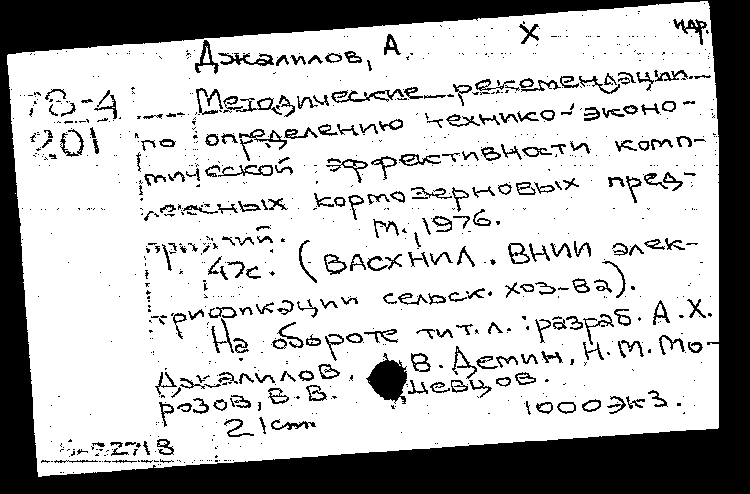 идр.
Джалилов, А. Х
78-4 Методические рекомендации
201 по определению технико-эконо-
мической эффективности комп-
лексных кормозерновых пред-
приятий. М., 1976.
47с. (ВАСХНИЛ. ВНИИ элек-
трификации сельск. хоз-ва).
На обороте тит. л.: разраб. А. Х.
Джалилов, В. Демин, Н. М. Мо-
розов, В. В. Шевцов.
21cm 1000экз.